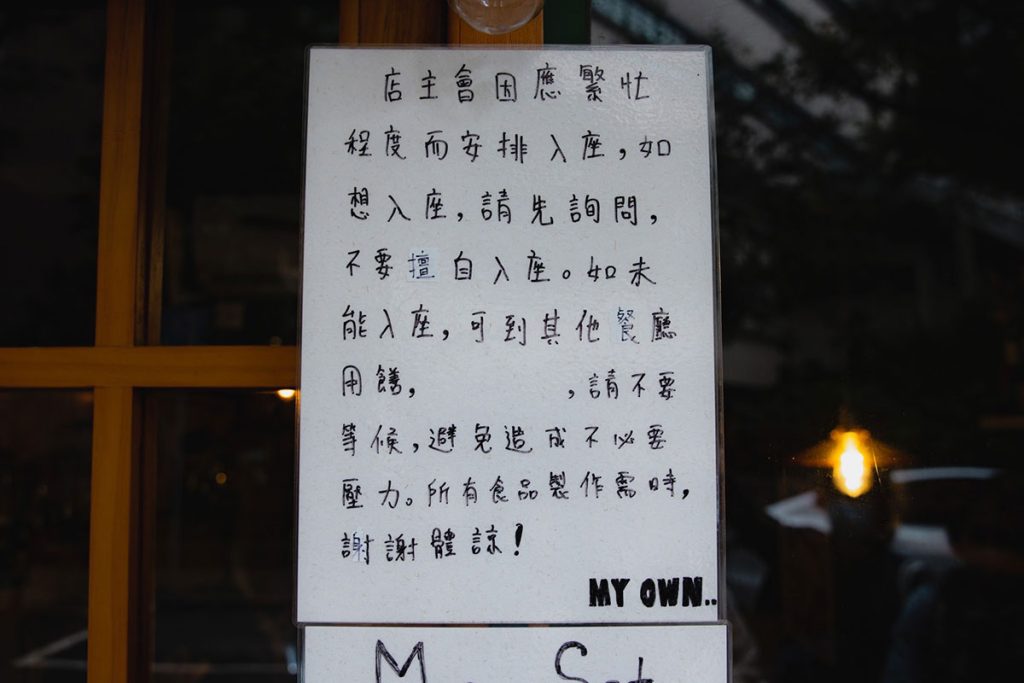 店主會因應繁忙
程度而安排入座,如
想入座,請先詢問,
不要擅自入座。如未
能入座,可到其他餐廳
用饍, ,請不要
等候,避免造成不必要
壓力。所有食品製作需時,
謝謝體諒!
MY OWN..